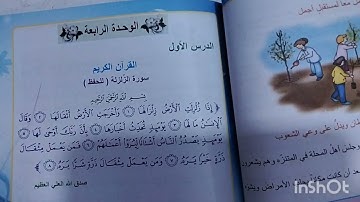 الوحدة الرابعة
الدرس الأول
القرآن الكريم
سورة الزلزلة ( للحفظ )
بسم الله الرحمن الرحيم
﴿ إِذَا زُلْزِلَتِ الْأَرْضُ زِلْزَالَهَا ١ وَأَخْرَجَتِ الْأَرْضُ أَثْقَالَهَا ٢ وَقَالَ
الْإِنسَانُ مَا لَهَا ٣ يَوْمَئِذٍ تُحَدِّثُ أَخْبَارَهَا ٤ بِأَنَّ رَبَّكَ أَوْحَى لَهَا ٥
يَوْمَئِذٍ يَصْدُرُ النَّاسُ أَشْتَاتًا لِّيُرَوْا أَعْمَالَهُمْ ٦ فَمَن يَعْمَلْ مِثْقَالَ
ذَرَّةٍ خَيْرًا يَرَهُ ٧ وَمَن يَعْمَلْ مِثْقَالَ ذَرَّةٍ شَرًّا يَرَهُ ٨ ﴾
صدق الله العلي العظيم
معاً لمستقبل أجمل
وعي الشعوب
المتنزه وهم يشعرون
الأمراض ويشر
InShot